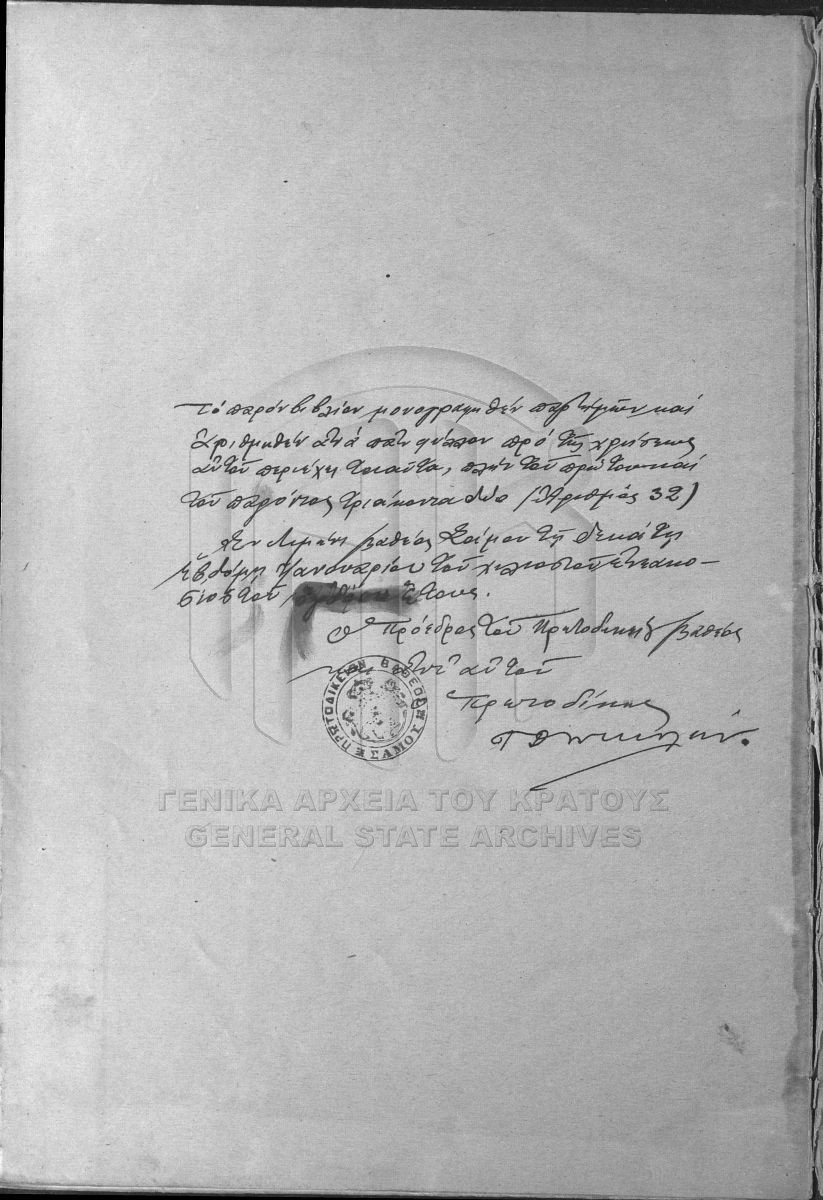 Τό παρόν βιβλίον μονογραφηθέν παρ' ἡμῶν καί
ἀριθμηθέν κατά πᾶν φύλλον πρό τῆς χρήσεως
αὐτοῦ περιέχει τοιαῦτα, πλήν τοῦ πρώτου καί
τοῦ παρόντος τριάκοντα δύο (Ἀριθμός 32)
Ἐν Λιμένι Βαθέος Σάμου τῇ δεκάτῃ
ἑβδόμῃ Ἰανουαρίου τοῦ χιλιοστοῦ ἐννεακο-
σιοστοῦ ἔτους.
Ὁ Πρόεδρος τοῦ Πρωτοδικείου Βαθέος
ἀντ' αὐτοῦ
Πρωτοδίκης
ΠΡΩΤΟΔΙΚΕΙΟΝ ΒΑΘΕΟΣ
ΣΑΜΟΥ
ΓΕΝΙΚΑ ΑΡΧΕΙΑ ΤΟΥ ΚΡΑΤΟΥΣ
GENERAL STATE ARCHIVES